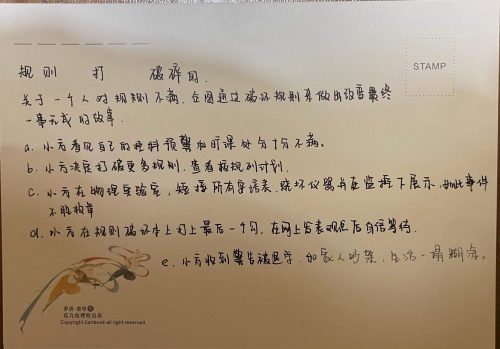 STAMP
规则 打 破碎的.
关于一个人对规则不满, 企图通过破坏规则来做出改变最终
一事无成的故事.
a. 小方看见自己的挂科预警和旷课处分十分不满。
b. 小方决定打破更多规则. 查看规则计划.
c. 小方在物理实验室, 短接所有导线, 烧坏仪器并在监控下展示,
不胜枚举
d. 小方在规则破坏本上打上最后一个勾, 在网上发表观点后自信等待.
e. 小方收到警告被退学. 和家人吵架, 生活一塌糊涂.
Copyright Zartbook all right reserved